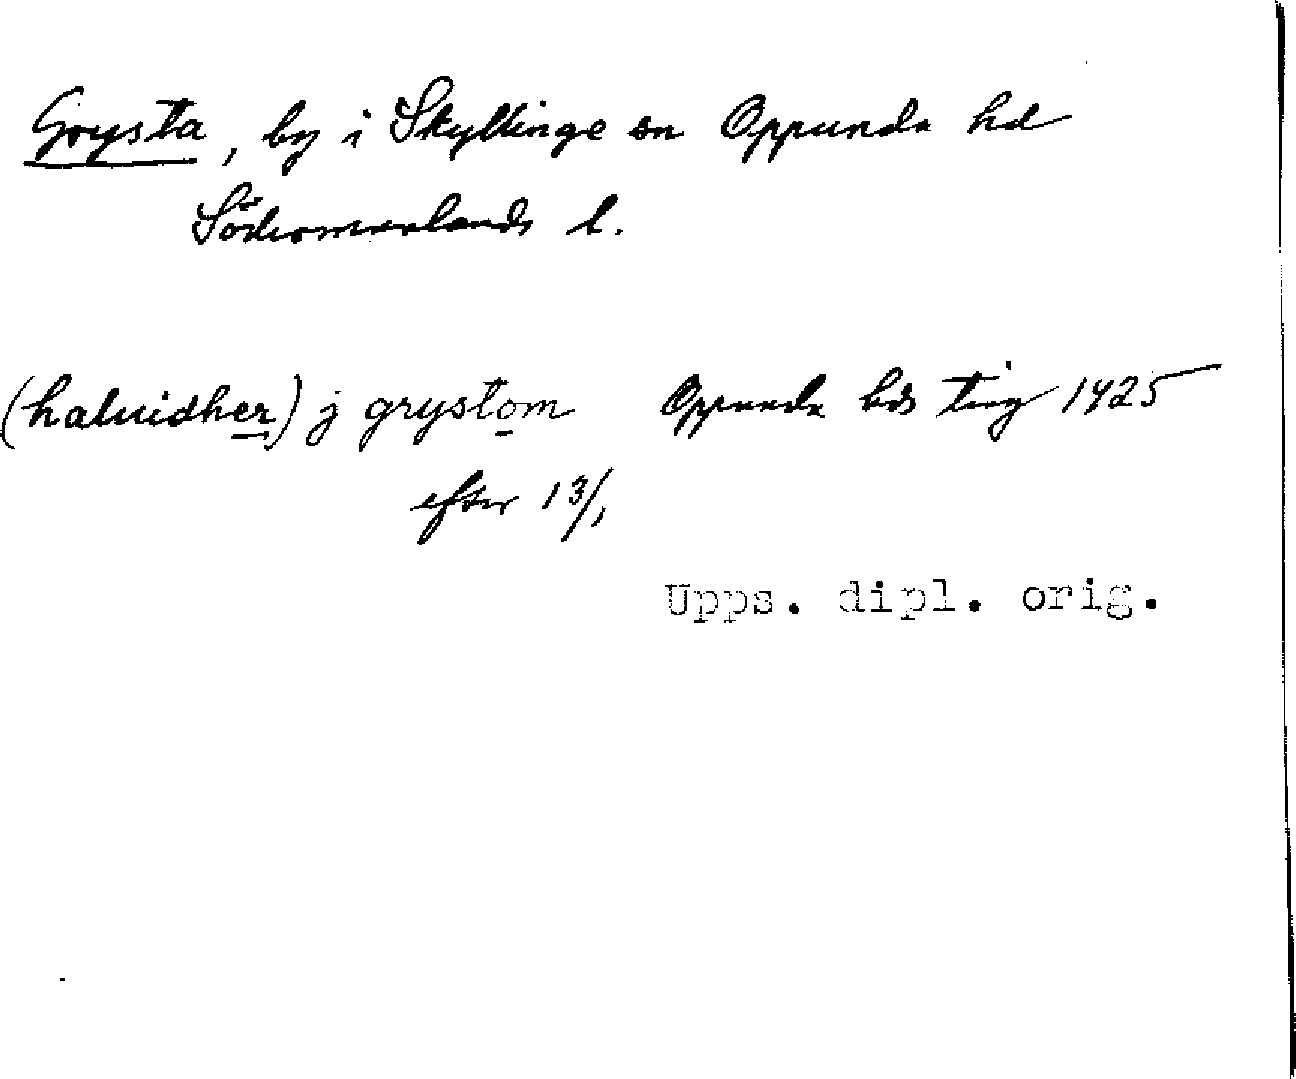 Grysta, by i Skyttinge sn Oppunda hd
Södermanlands l.
(haluidher) j grystom Oppunda hds ting 1425
efter 13/1
Upps. dipl. orig.